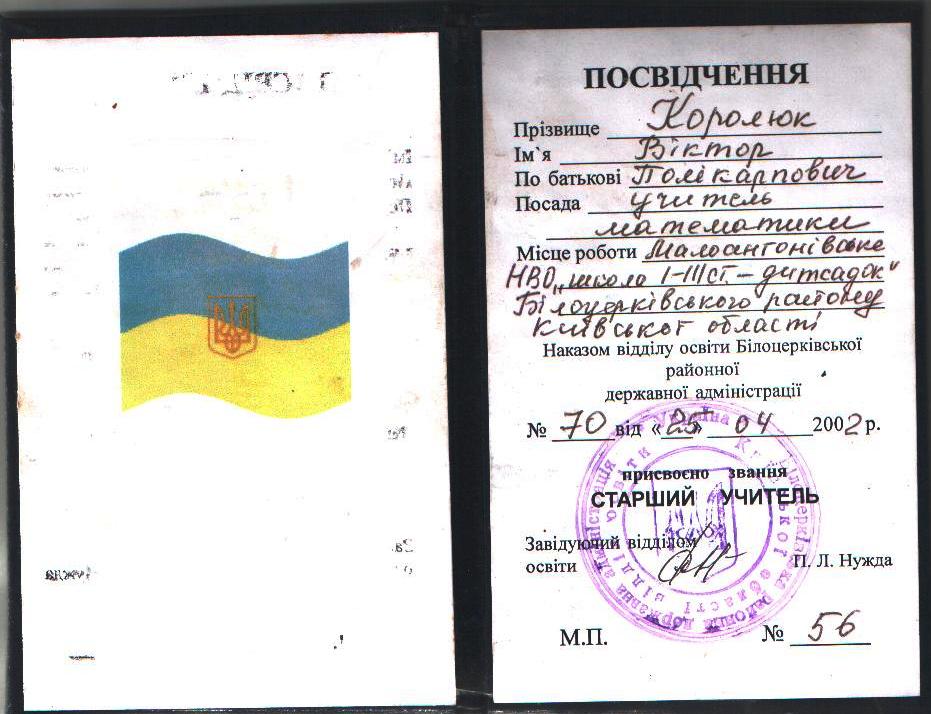 ПОСВІДЧЕННЯ
Прізвище Королюк
Ім`я Віктор
По батькові Полікарпович
Посада учитель
математики
Місце роботи Малоантонівське
НВО „школа І-ІІІ ст. – дитсадок"
Білоцерківського району
Київської області
Наказом відділу освіти Білоцерківської
районної
державної адміністрації
№ 70 від «25» 04 2002 р.
присвоєно звання
СТАРШИЙ УЧИТЕЛЬ
Завідуючий відділом
освіти П. Л. Нужда
М.П. № 56
Україна
відділ освіти
області